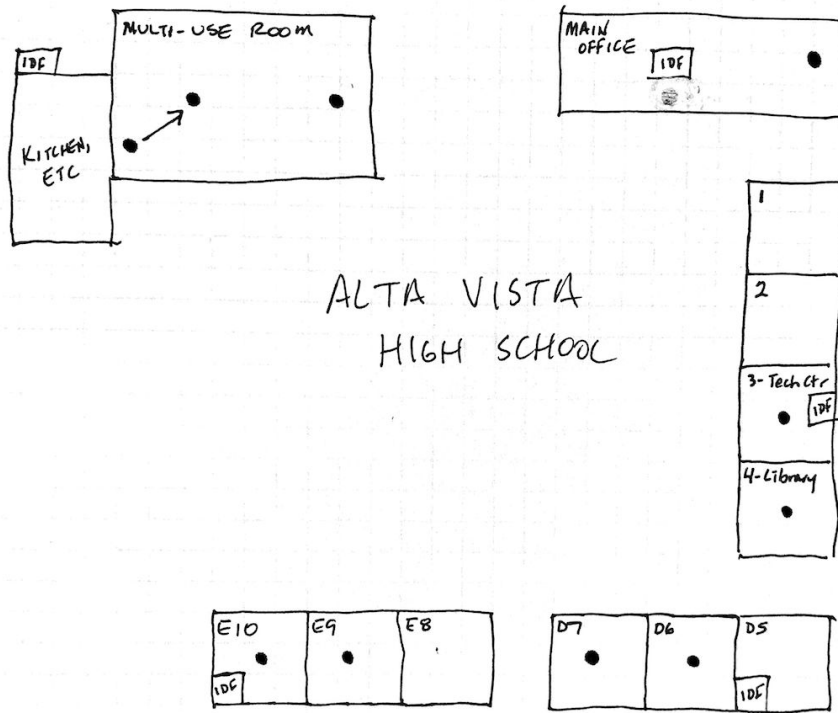 MULTI-USE ROOM
IDF
KITCHEN,
ETC
MAIN
OFFICE
IDF
1
2
3-Tech Ctr
IDF
4-Library
ALTA VISTA
HIGH SCHOOL
E10
E9
E8
IDF
D7
D6
D5
IDF